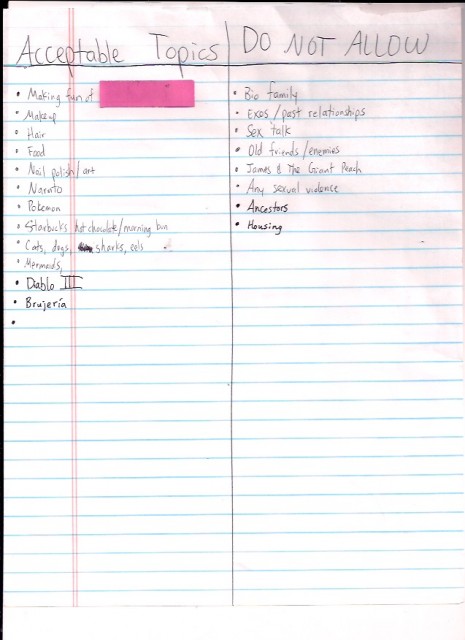 Acceptable Topics
• Making fun of
• Makeup
• Hair
• Food
• Nail polish/art
• Naruto
• Pokemon
• Starbucks hot chocolate/morning bun
• Cats, dogs, sharks, eels
• Mermaids,
• Diablo III
• Brujería
•
DO NOT ALLOW
• Bio family
• Exes/past relationships
• Sex talk
• Old friends/enemies
• James & The Giant Peach
• Any sexual violence
• Ancestors
• Housing